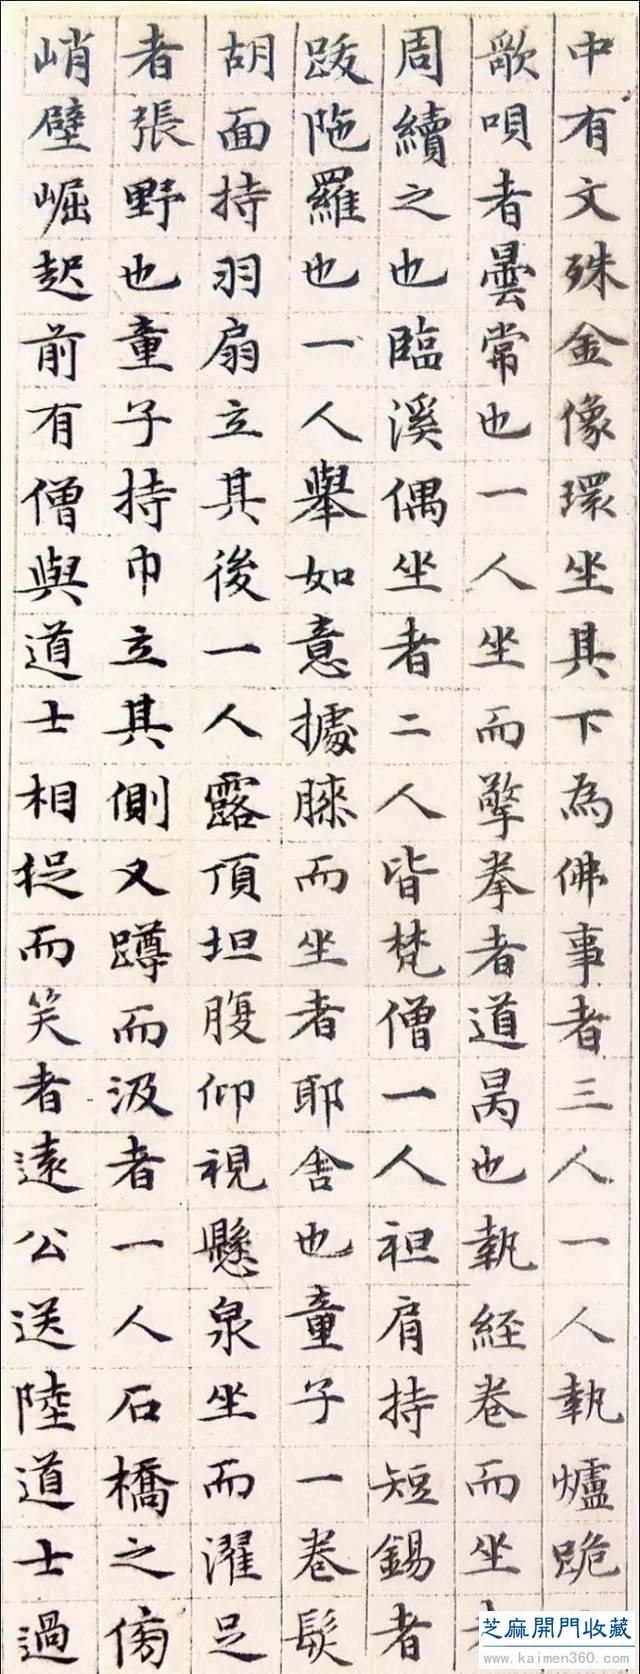 中有文殊金像環坐其下為佛事者三人一人執爐跪
歌唄者曇常也一人坐而擎拳者道昺也執經卷而坐
周續之也臨溪偶坐者二人皆梵僧一人袒肩持短錫者
跋陁羅也一人舉如意據膝而坐者耶舍也童子一卷髮
胡面持羽扇立其後一人露頂坦腹仰視懸泉坐而濯足
者張野也童子持巾立其側又蹲而汲者一人石橋之傍
峭壁崛起前有僧與道士相捉而笑者遠公送陸道士過
芝麻開門收藏
www.kaimen360.com